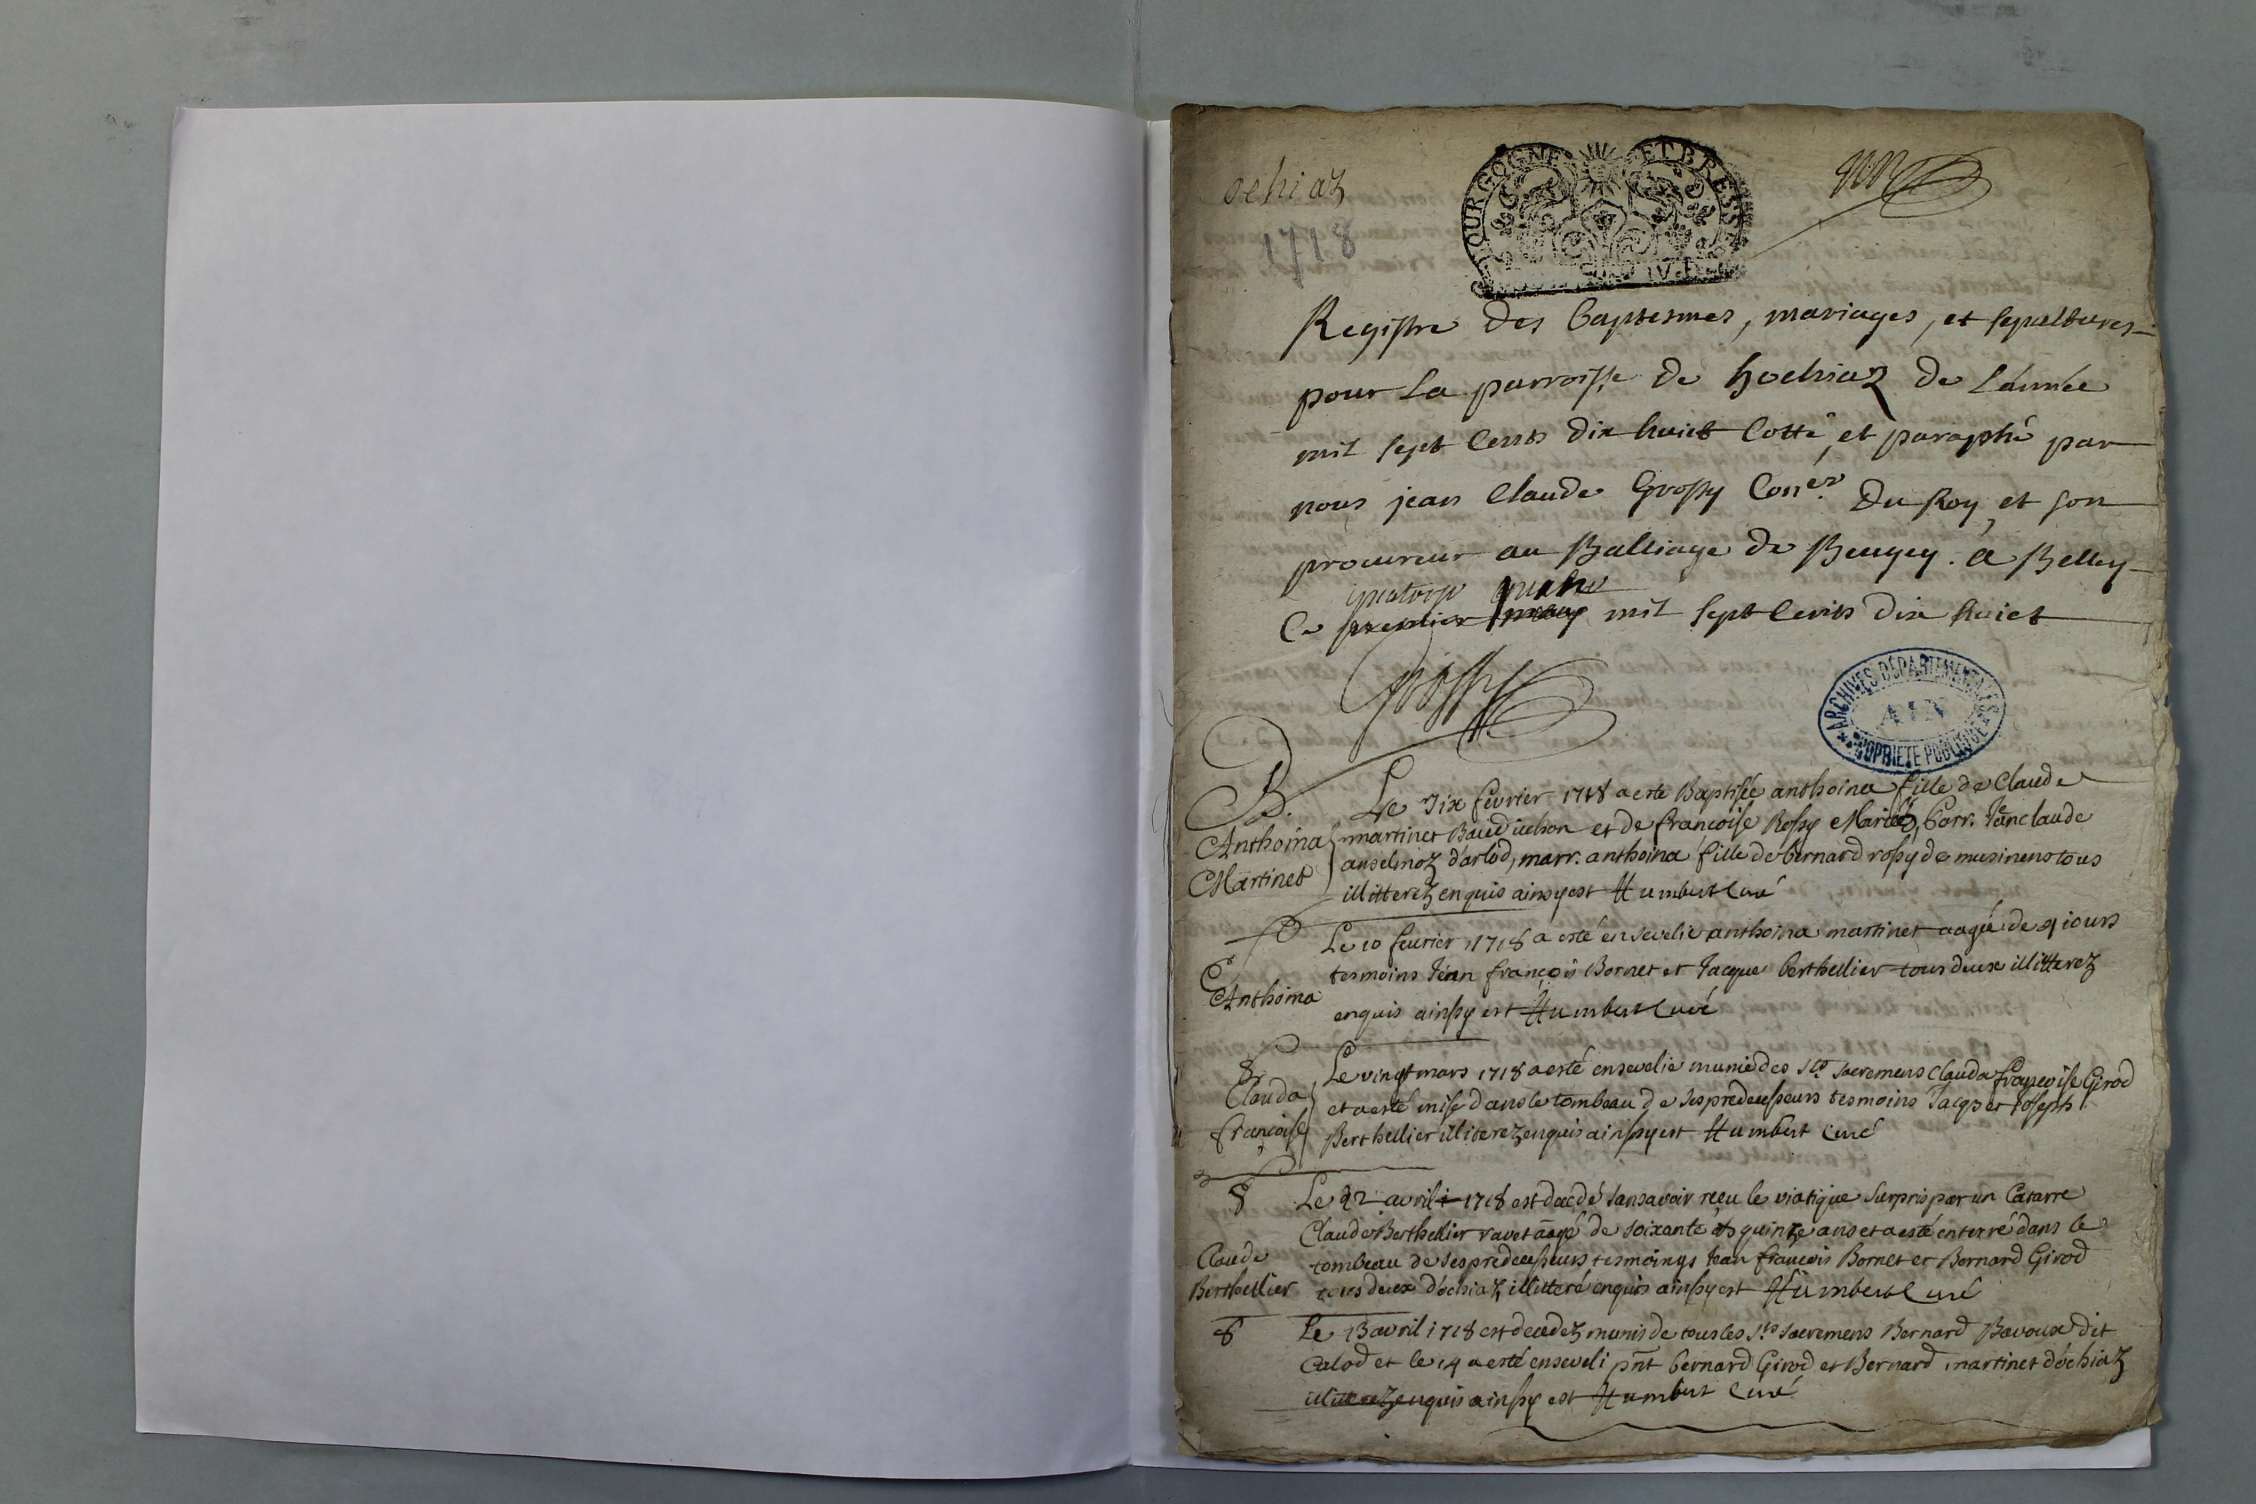 ochiaz
1718
BOURGOGNE ET BRESSE
Registre des baptesmes, mariages, et sepultures
pour la parroisse de hochiaz de l'année
mil sept cents dix huict cotté, et paraphé par
nous jean Claude Grossy Con.er du Roy, et son
procureur au Balliage de Beugey. a Belley
quatorze
Ce premier may mil sept cents dix huict
Grossy
ARCHIVES DÉPARTEMENTALES
AIN
PROPRIETE PUBLIQUE
B.
Anthoina
Martinet
Le dix fevrier 1718 a esté Baptisée anthoina fille de Claude
martinet et de francoise Rossy Mariéz, parr. Jeanclaude
anselmoz d'arlod, marr. anthoina fille de bernard rossy de musinens tous
illitterez enquis ainsy est Humbert curé
Anthoina
Le 10 feurier 1718 a esté ensevelie anthoina martinet aagée de jours
tesmoins Jean françois Bornet et Jacque berthellier tous deux illitterez
enquis ainssy est Humbert curé
S
Clauda
françoise
Le vingt mars 1718 a esté ensevelie munie des sts sacremens Clauda françoise Girod
et a esté mise dans le tombeau de ses predecesseurs tesmoins Jacques et Joseph
Berthellier illiterez enquis ainssy est Humbert curé
S
Claude
Berthellier
Le 22 avril 1718 est decedé sans avoir reçu le viatique surpris par un Catarre
Claude Berthellier ravet aagé de soixante et quinze ans et a esté enterré dans le
tombeau de ses predecesseurs tesmoings Jean françois Bornet et Bernard Girod
tous deux d'ochiaz illitteré enquis ainssy est Humbert curé
S
Le 13 avril 1718 est decedez munis de tous les sts sacremens Bernard Bavoux dit
Calod et le 14 a esté enseveli pnt bernard Girod et Bernard martinet d'ochiaz
illitterez enquis ainssy est Humbert curé